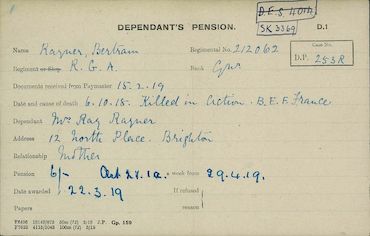 DEPENDANT'S PENSION.
D.E.S. 40M
SK 3369
D.1
Name Rayner, Bertram
Regimental No. 212062
Regiment or Ship R. G. A.
Rank Gnr
Case No.
D.P. 253R
Documents received from Paymaster 15.2.19
Date and cause of death 6.10.18. Killed in Action. B.E.F. France
Dependant Mrs Ray Rayner
Address 12 North Place. Brighton
Relationship Mother
Pension 6/- a week from 29.4.19.
Date awarded 22.3.19
If refused
reason
Papers
J.P. Gp. 159